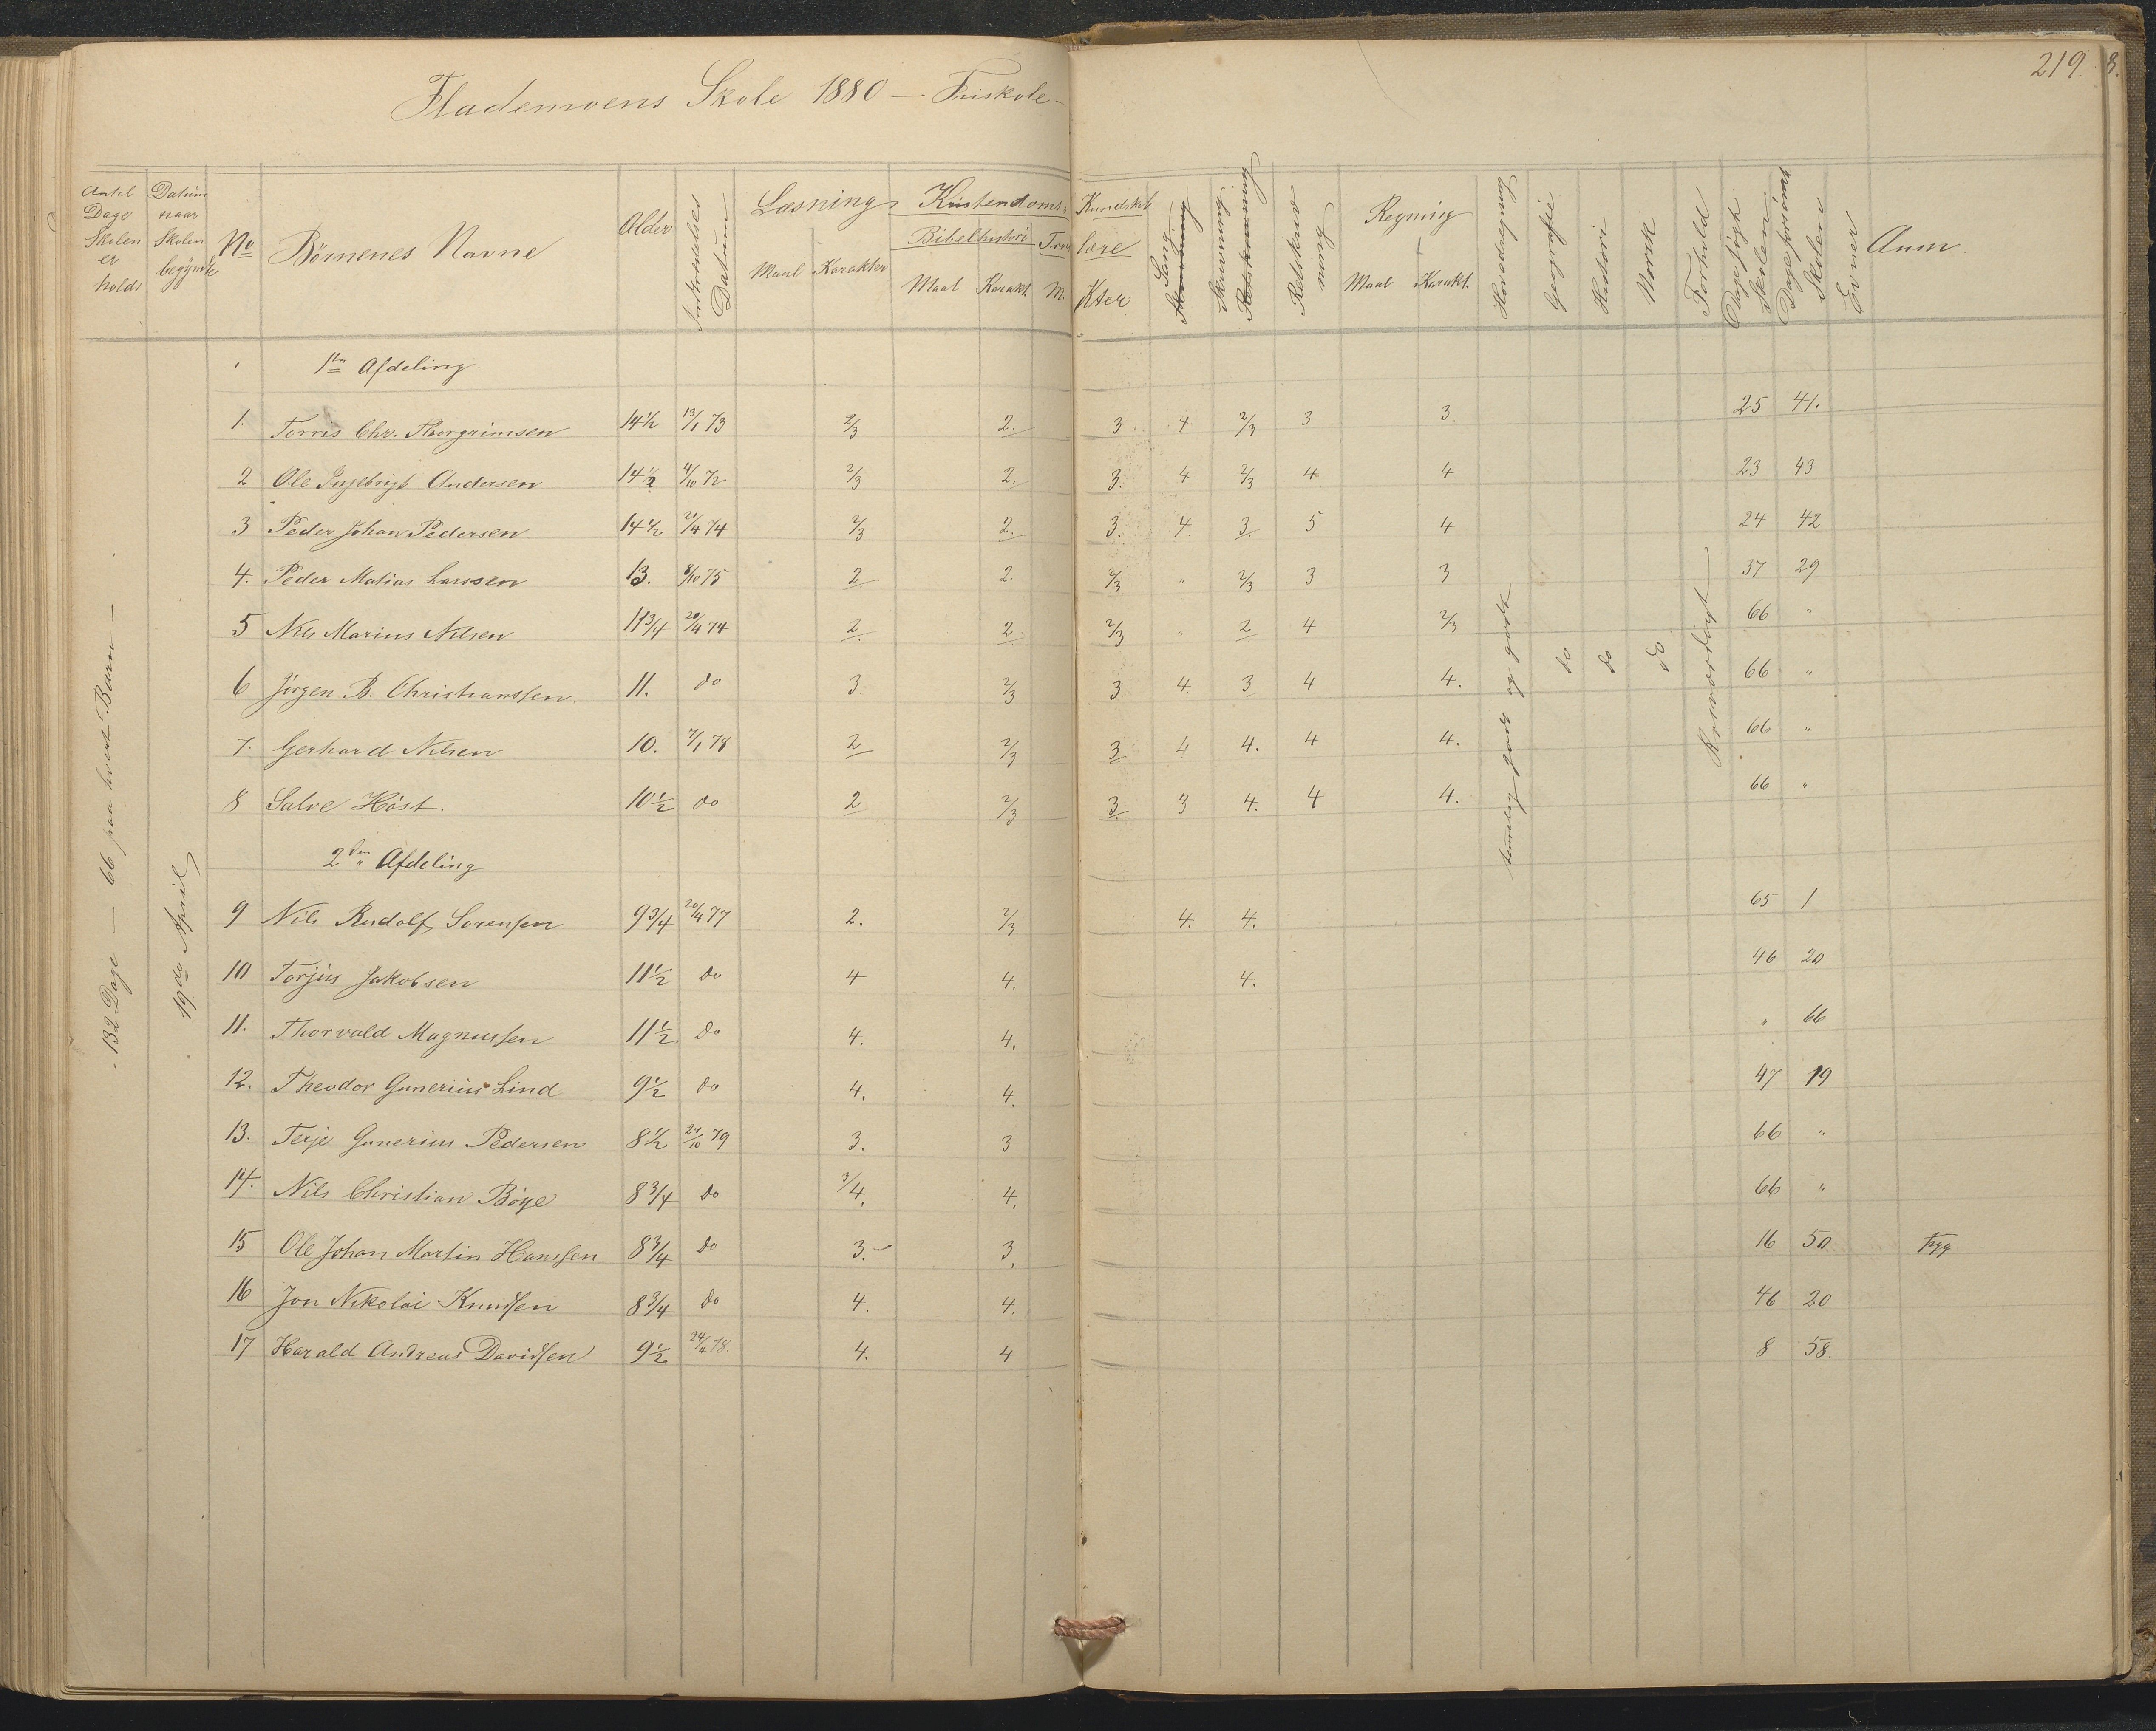 219.
Flademoens Skole 1880 — Friskole —
Antal Dage Skolen er holdt
Datum naar Skolen begyndte
No
Børnenes Navne
Alder
Indskrivelses Datum
Læsning
Maal Karakter
Kristendoms Kundskab
Bibelhistori
Maal Karakt.
Troeslære
M. Kter
Sang
Skrivning
Retskrivning
Regning
Maal Karakt.
Hovedregning
Geografie
Histori
Norsk
Forhold
Dage søgt Skolen
Dage forsømt Skolen
Evner
Anm.
132 Dage — 66 paa hvert Barn —
19de April
1te Afdeling.
1. Torris Chr. Thorgrimsen 14½ 13/1 73 2/3 2. 3 4 2/3 3 3. 25 41.
2 Ole Ingebrigt Andersen 14½ 4/10 72 2/3 2. 3. 4 2/3 4 4 23 43
3 Peder Johan Pedersen 14½ 21/4 74 2/3 2. 3. 4. 3 5 4 24 42
4. Peder Matias Larssen 13. 8/10 75 2 2. 2/3 " 2/3 3 3 37 29
5 Nils Marius Nilsen 11¾ 20/4 74 2 2 2/3 " 2 4 2/3 66 "
6 Jörgen B. Christianssen 11. do 3. 2/3 3 4. 3 4 4. 66 "
7. Gerhard Nilsen 10. 7/1 78 2 2/3 3 4 4. 4 4. 66 "
8 Salve Höst. 10½ do 2 2/3 3. 3 4. 4 4. 66 "
temelig godt og godt
do
do
do
Roesværdigt
2den Afdeling
9 Nils Rudolf Sorensen 9¾ 20/4 77 2. 2/3 4. 4. 65 1
10 Torjus Jakobsen 11½ do 4 4. 4. 46 20
11. Thorvald Magnussen 11½ do 4. 4. " 66
12. Theodor Gunerius Lind 9½ do 4. 4. 47 19
13. Terje Gunerius Pedersen 8½ 27/10 79 3. 3 66 "
14. Nils Christian Böye 8¾ do 3/4. 4. 66 "
15 Ole Johan Martin Hanssen 8¾ do 3.- 3. 16 50
16 Jon Nikolai Knudsen 8¾ do 4. 4. 46 20
17 Harald Andreas Davidsen 9½ 24/4 78. 4. 4 8 58.